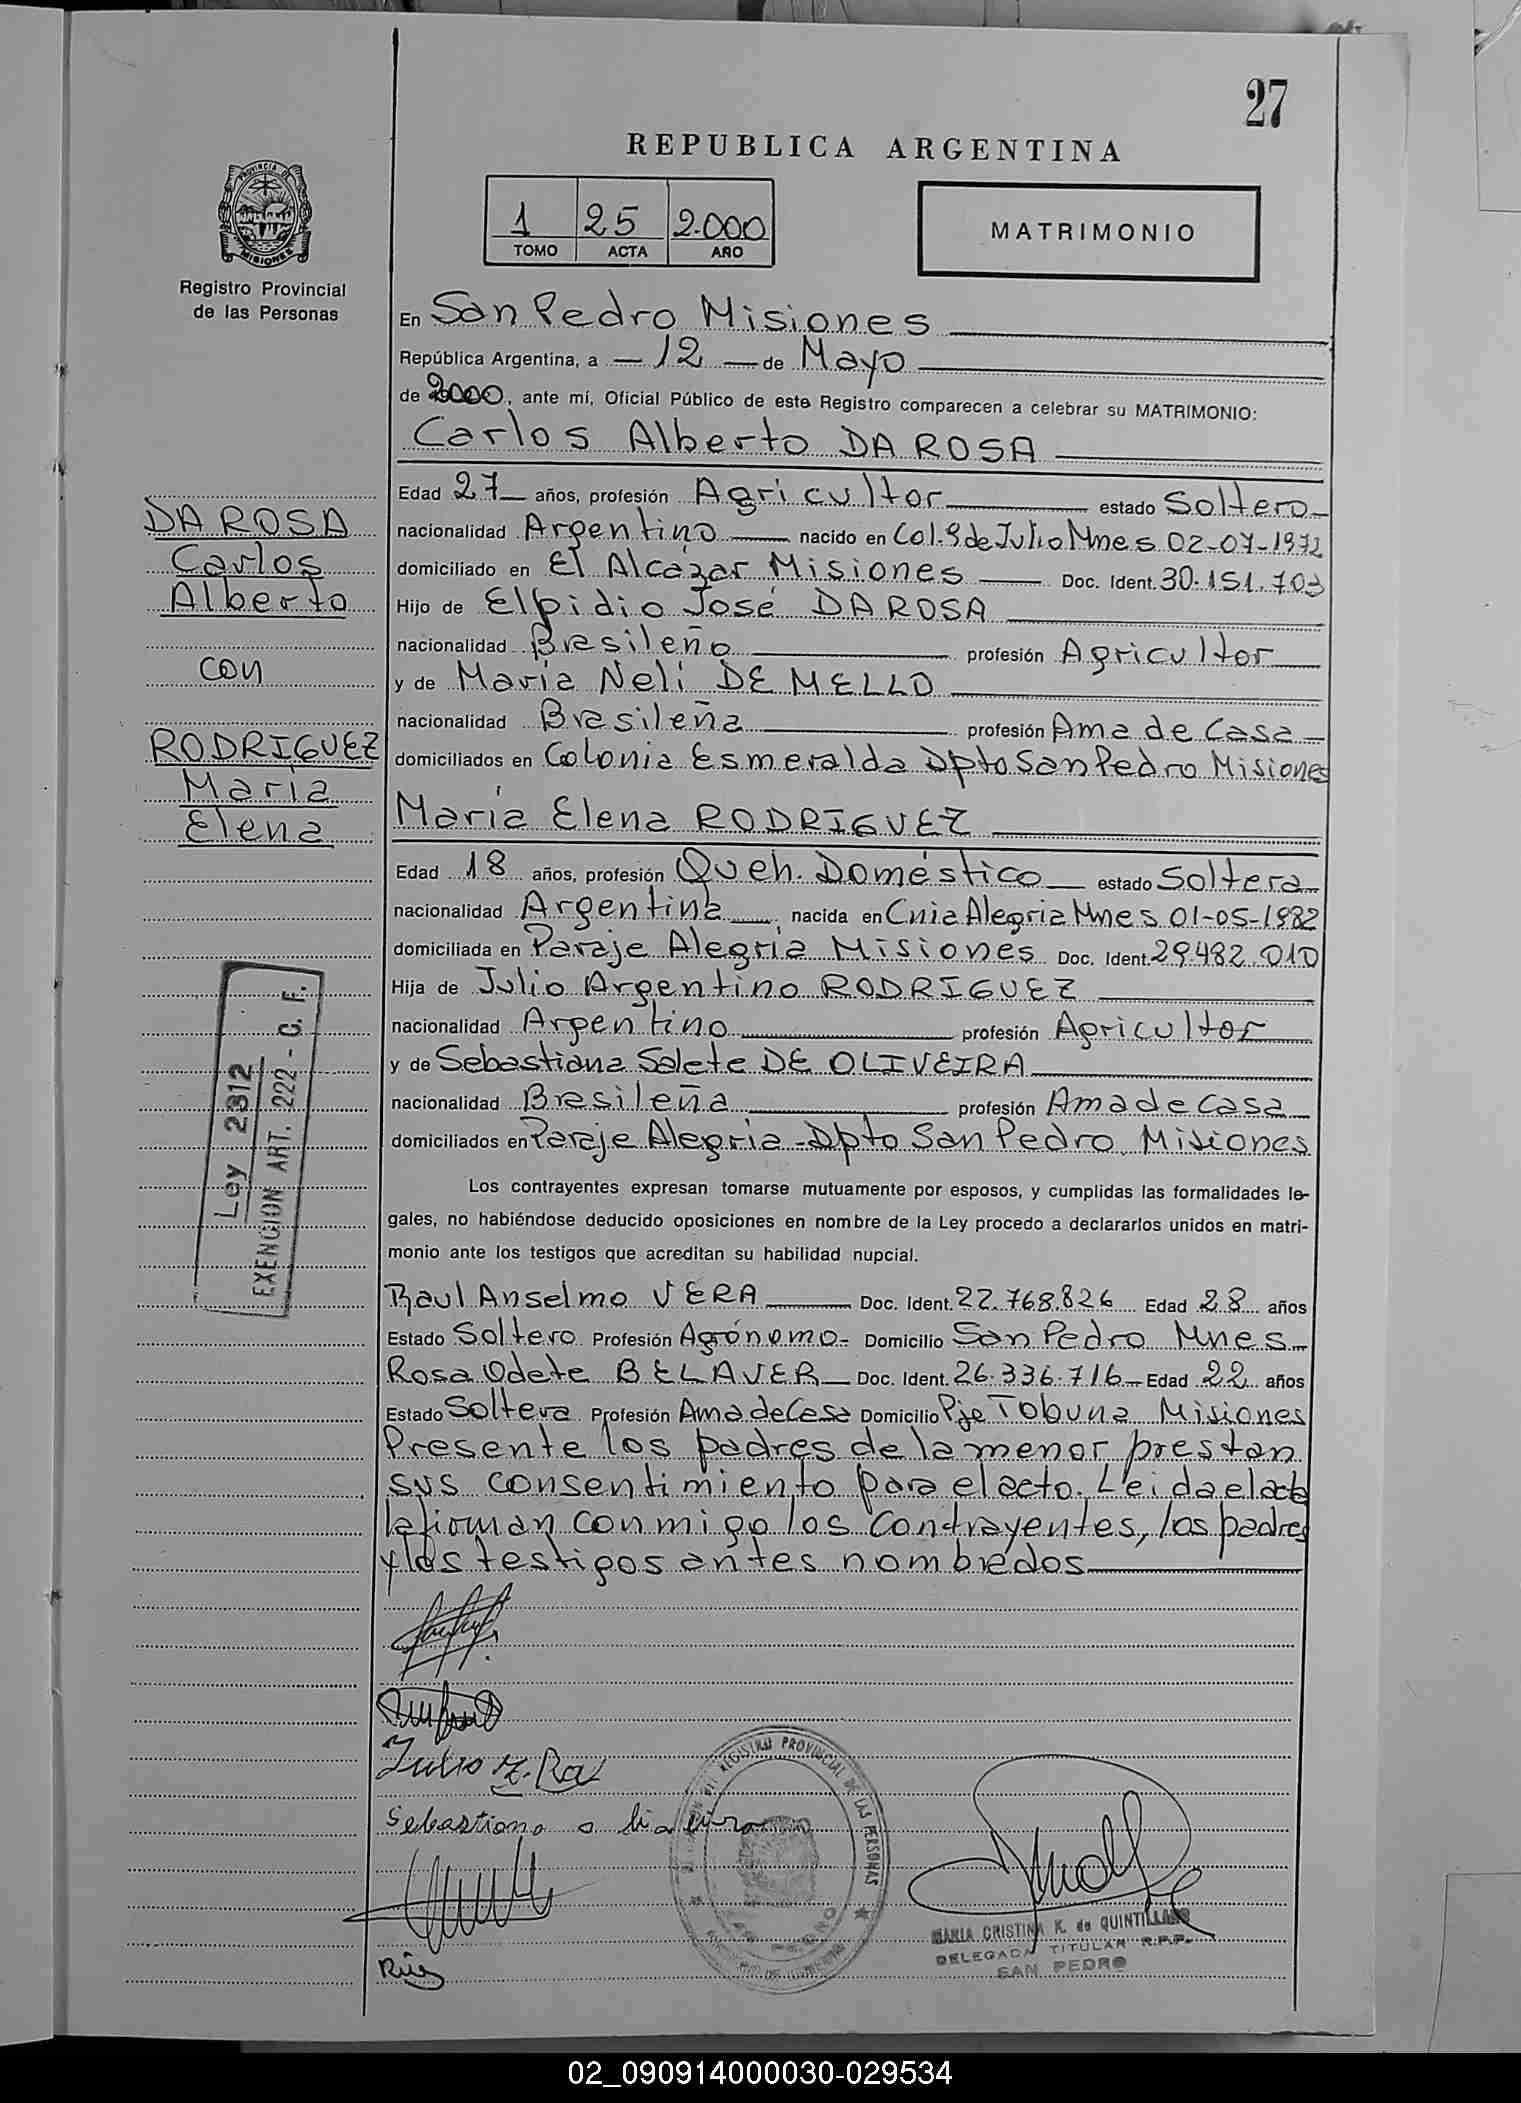 27
REPUBLICA ARGENTINA
PROVINCIA DE
MISIONES
Registro Provincial
de las Personas
1 25 2.000
TOMO ACTA AÑO
MATRIMONIO
En San Pedro Misiones
República Argentina, a - 12 - de Mayo
de 2000, ante mí, Oficial Público de este Registro comparecen a celebrar su MATRIMONIO:
Carlos Alberto DA ROSA
Edad 27 años, profesión Agricultor estado Soltero
nacionalidad Argentino nacido en Col. 9 de Julio Mnes 02-07-1972
domiciliado en El Alcázar Misiones Doc. Ident. 30.151.703
Hijo de Elpidio José DA ROSA
nacionalidad Brasileño profesión Agricultor
y de María Neli DE MELLO
nacionalidad Brasileña profesión Ama de Casa
domiciliados en Colonia Esmeralda Dpto San Pedro Misiones
María Elena RODRIGUEZ
Edad 18 años, profesión Queh. Doméstico estado Soltera
nacionalidad Argentina nacida en Cnia Alegria Mnes 01-05-1982
domiciliada en Paraje Alegría Misiones Doc. Ident. 29.482.010
Hija de Julio Argentino RODRIGUEZ
nacionalidad Argentino profesión Agricultor
y de Sebastiana Salete DE OLIVEIRA
nacionalidad Brasileña profesión Ama de casa
domiciliados en Paraje Alegria - Dpto San Pedro Misiones
Los contrayentes expresan tomarse mutuamente por esposos, y cumplidas las formalidades le-
gales, no habiéndose deducido oposiciones en nombre de la Ley procedo a declararlos unidos en matri-
monio ante los testigos que acreditan su habilidad nupcial.
Raul Anselmo VERA Doc. Ident. 22.768.826 Edad 28 años
Estado Soltero Profesión Agrónomo - Domicilio San Pedro Mnes
Rosa Odete BELAVER Doc. Ident. 26.336.716 Edad 22 años
Estado Soltera Profesión Ama de Casa Domicilio Pje Tobuna Misiones
Presente los padres de la menor prestan
sus consentimiento para el acto. Leida el acta
la firman conmigo los contrayentes, los padres
y los testigos antes nombrados
DA ROSA
Carlos
Alberto
con
RODRIGUEZ
María
Elena
Ley 2312
EXENCION ART. 222 - C. F.
Julio
Sebastiana
REGISTRO PROVINCIAL DE LAS PERSONAS
MARIA CRISTINA K. de QUINTILLANO
DELEGADA TITULAR R.P.P.
SAN PEDRO
02_090914000030-029534